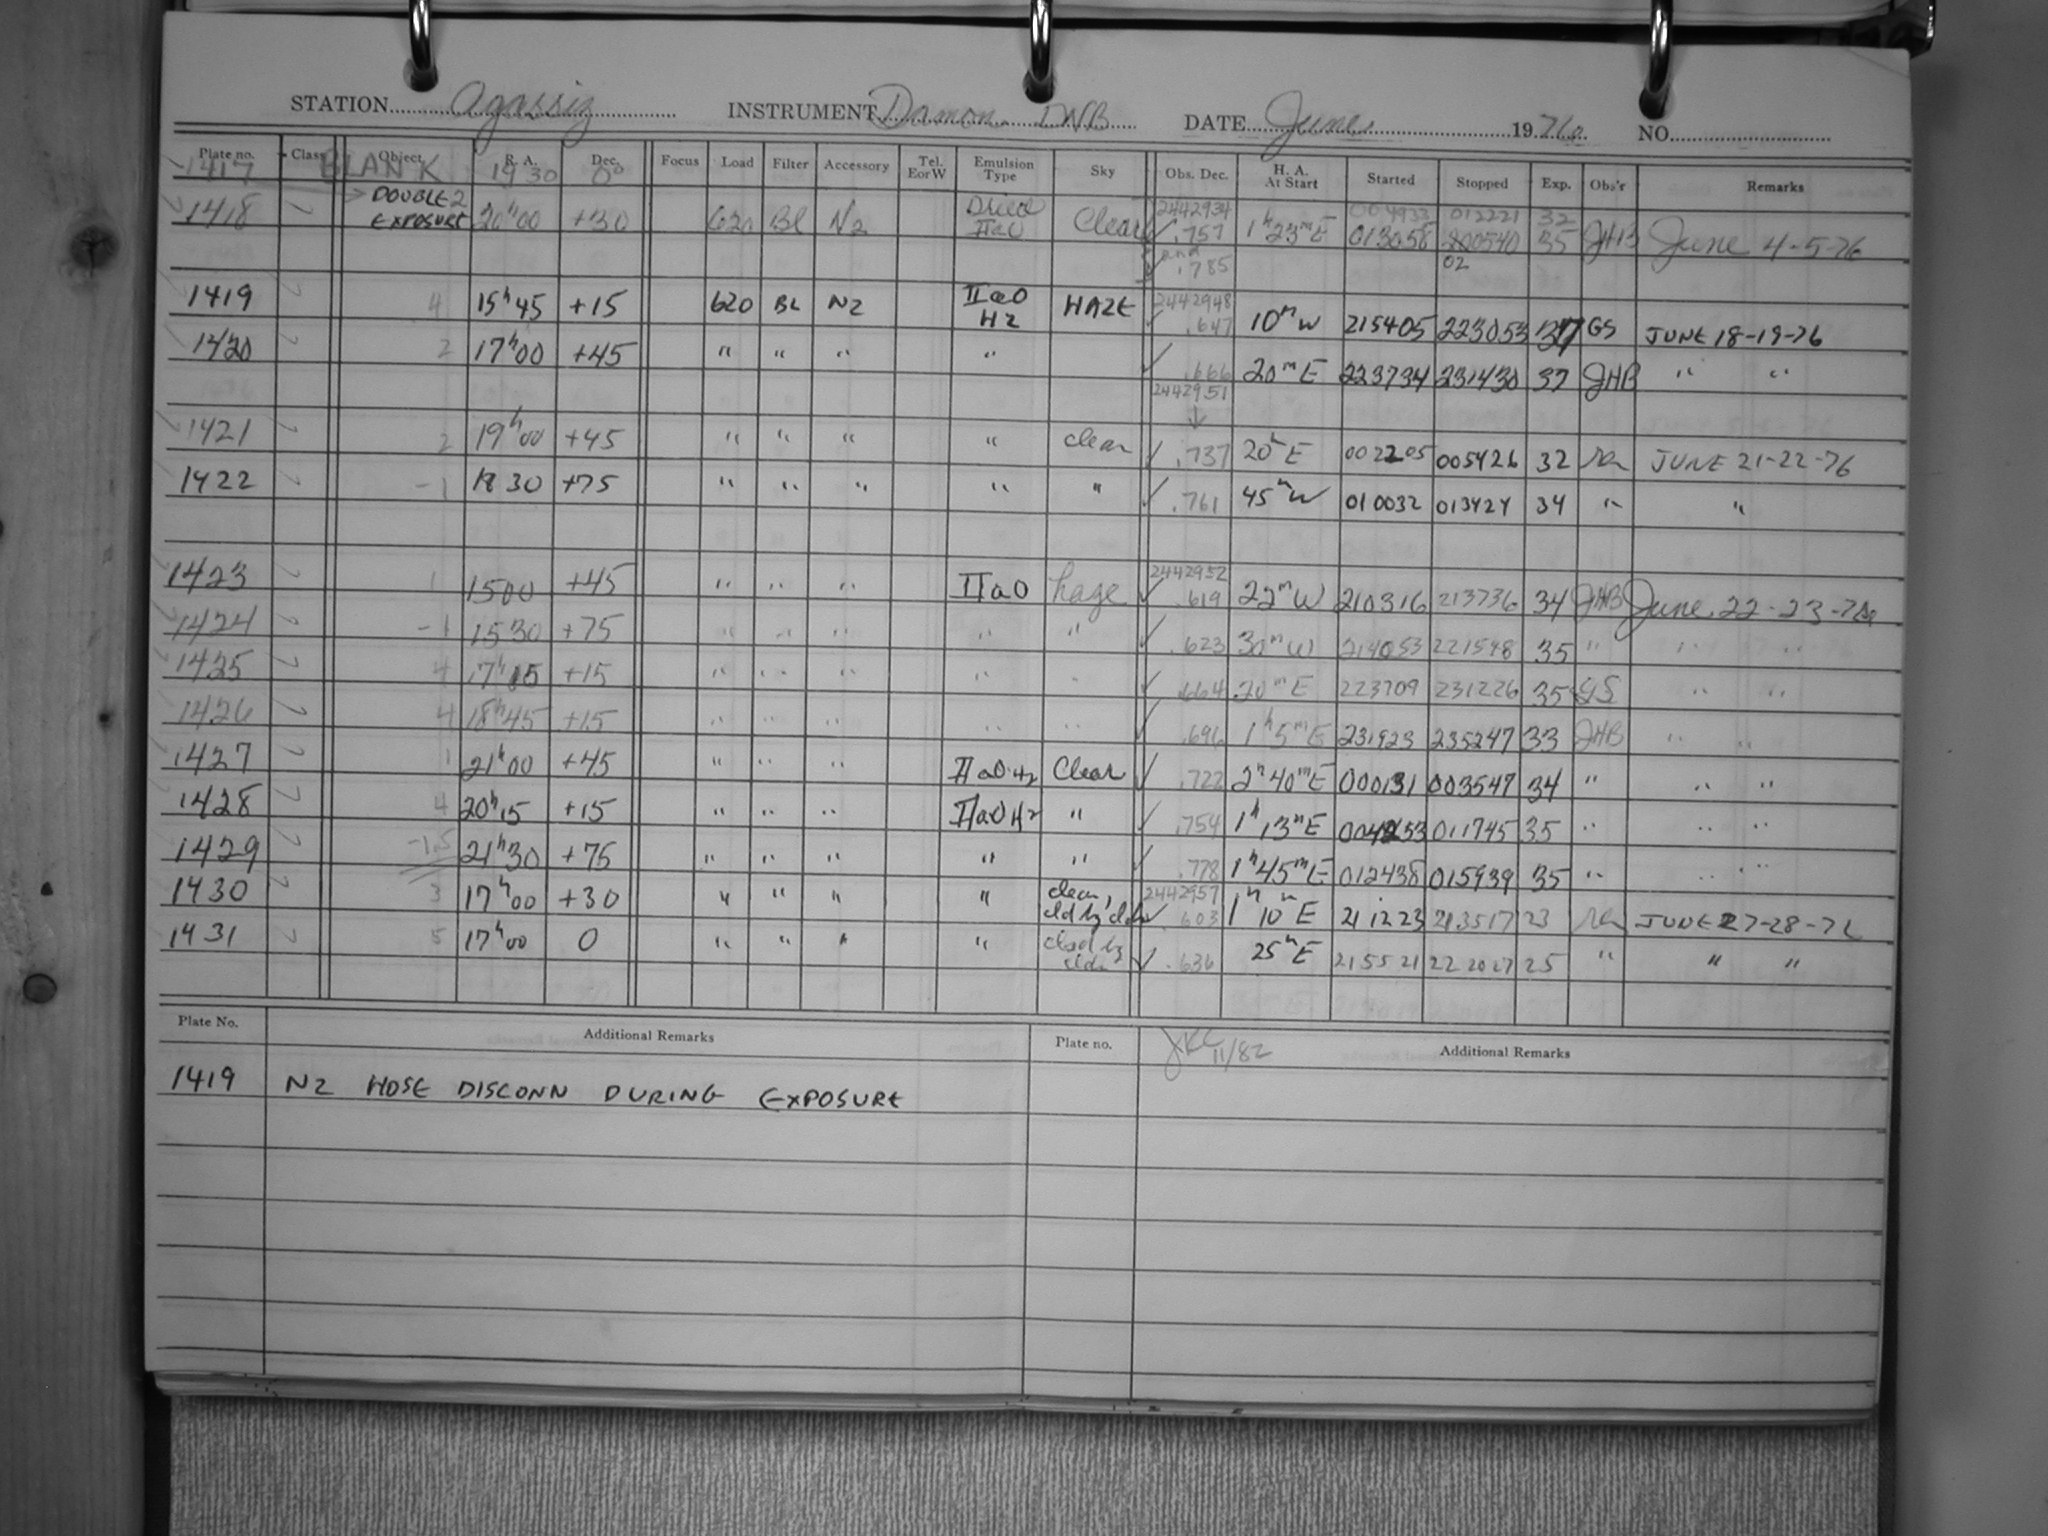 STATION Agassiz INSTRUMENT Damon DNB DATE June 1976 NO.
Plate no. Class Object R. A. Dec. Focus Load Filter Accessory Tel. EorW Emulsion Type Sky Obs. Dec. H. A. At Start Started Stopped Exp. Obs'r Remarks
1417 BLANK 19 30 0°
1418 DOUBLE 2 EXPOSURE 20h00 +30 620 Bl N2 IIaO Clear 2442934 .757 1h23mE 013058 35 JHB June 4-5-76
and .785 02
1419 4 15h45 +15 620 BL N2 IIaO H2 HAZE 2442948 .647 10m W 215405 223053 37 GS JUNE 18-19-76
1420 2 17h00 +45 " " " " .666 20mE 223734 231430 37 JHB " "
2442951
1421 2 19h00 +45 " " " " clear .737 20mE 002205 005426 32 JUNE 21-22-76
1422 -1 18 30 +75 " " " " " .761 45mW 010032 013424 34 " "
1423 1 1500 +45 " " " IIaO haze 2442952 .619 22mW 210316 213736 34 JHB June 22-23-76
1424 -1 1530 +75 " " " " " .623 30mW 214053 221548 35 " " "
1425 4 17h15 +15 " " " " " .664 20mE 223709 231226 35 GS " "
1426 4 18h45 +15 " " " " " .696 1h5mE 231923 235247 33 JHB " "
1427 1 21h00 +45 " " " IIaO H2 Clear .722 2h40mE 000131 003547 34 " " "
1428 4 20h15 +15 " " " IIaO H2 " .754 1h13mE 004253 011745 35 " " "
1429 -1.5 21h30 +75 " " " " " .778 1h45mE 012438 015939 35 " " "
1430 3 17h00 +30 " " " " clear, 2442957 .603 1h10mE 211223 213517 23 JUNE 27-28-76
1431 5 17h00 0 " " " " .636 25mE 215521 222027 25 " " "
Plate No. Additional Remarks Plate no. JKC 11/82 Additional Remarks
1419 N2 HOSE DISCONN DURING EXPOSURE